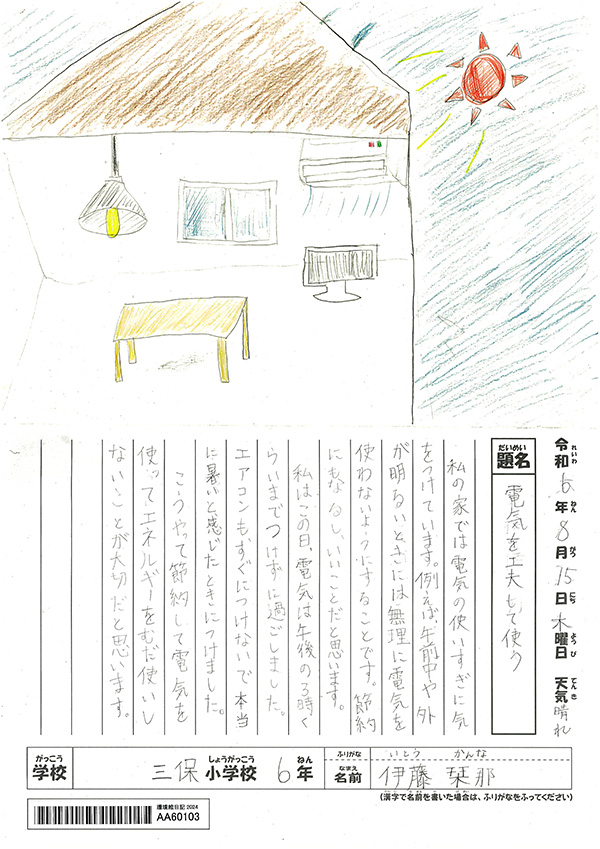 令和6年8月15日木曜日 天気晴れ
れいわ ねん がつ にち ようび てんき
題名 電気を工夫して使う
だいめい
私の家では電気の使いすぎに気
をつけています。例えば、午前中や外
が明るいときには無理に電気を
使わないようにすることです。節約
にもなるし、いいことだと思います。
私はこの日、電気は午後の3時く
らいまでつけずに過ごしました。
エアコンもすぐにつけないで本当
に暑いと感じたときにつけました。
こうやって節約して電気を
使ってエネルギーをむだ使いし
ないことが大切だと思います。
がっこう しょうがっこう ねん
学校 三保小学校 6年
ふりがな いとう かんな
なまえ
名前 伊藤 栞那
(漢字で名前を書いた場合は、ふりがなをふってください)
環境絵日記 2024
AA60103